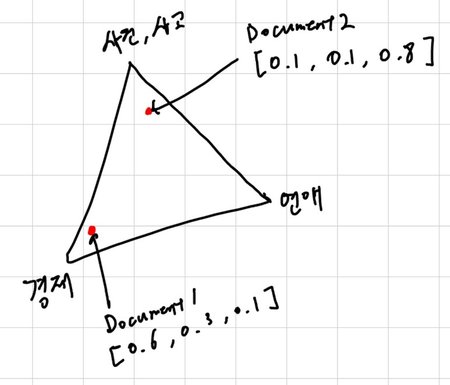 사건, 사고
Document 2
[0.1, 0.1, 0.8]
연애
경제
Document 1
[0.6, 0.3, 0.1]